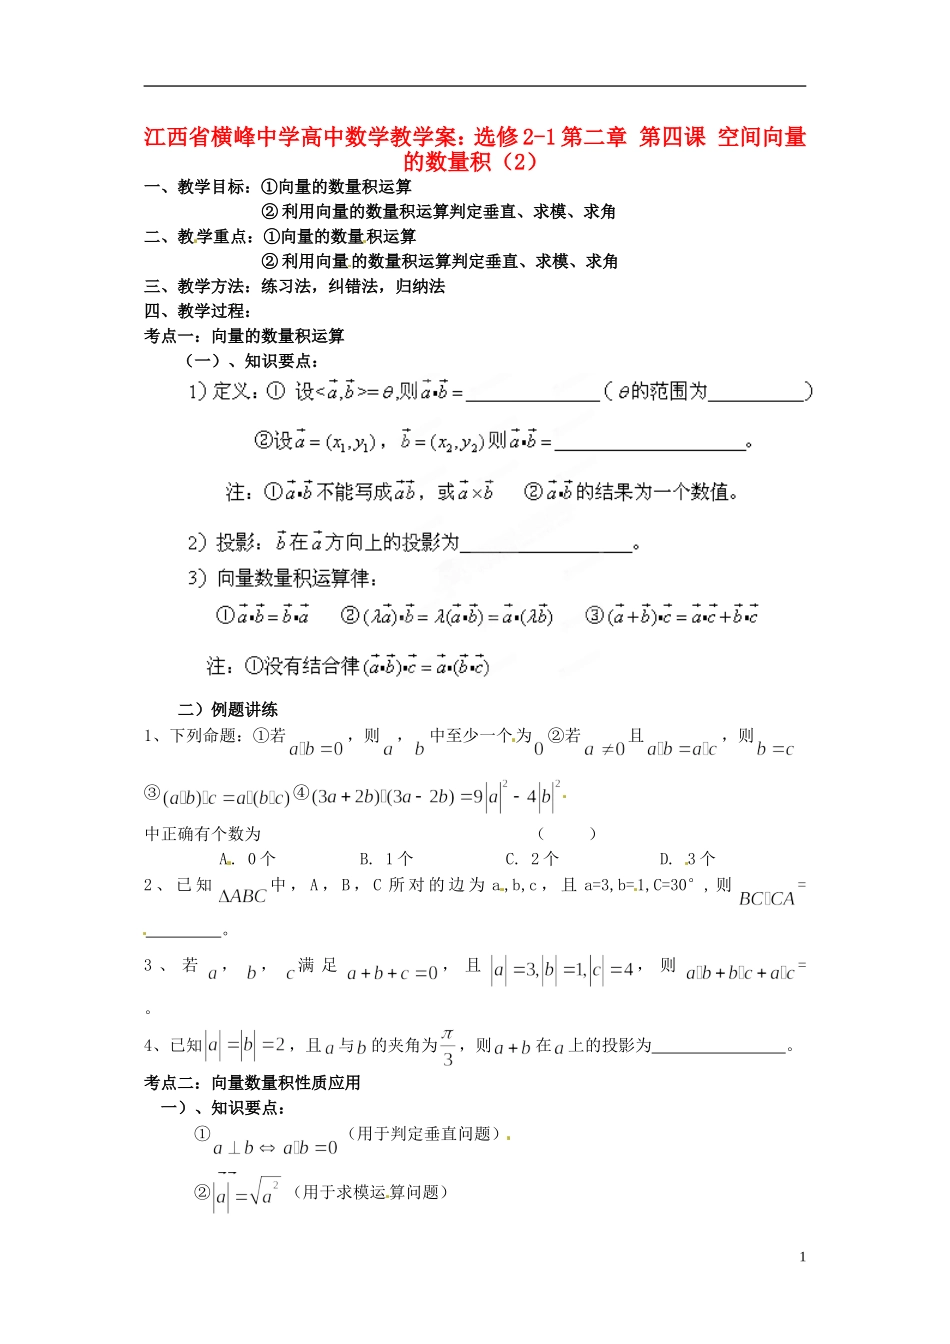 江西省横峰中学高中数学教学案：选修 2-1 第二章 第四课 空间向量
的数量积（2）
一、教学目标：①向量的数量积运算
② 利用向量的数量积运算判定垂直、求模、求角
二、教学重点：①向量的数量积运算
② 利用向量的数量积运算判定垂直、求模、求角
三、教学方法：练习法，纠错法，归纳法
四、教学过程：
考点一：向量的数量积运算
（一）、知识要点：
1) 定义：① 设<a⃗,b⃗>=θ,则a⃗•b⃗=____________(θ的范围为________)
②设a⃗=(x₁,y₁)，b⃗=(x₂,y₂)则a⃗•b⃗=________________。
注：①a⃗•b⃗不能写成a⃗b⃗，或a⃗×b⃗ ②a⃗•b⃗的结果为一个数值。
2) 投影：b⃗在a⃗方向上的投影为________________。
3) 向量数量积运算律：
①a⃗•b⃗=b⃗•a⃗ ②(λa⃗)•b⃗=λ(a⃗•b⃗)=a⃗•(λb⃗) ③(a⃗+b⃗)•c⃗=a⃗•c⃗+b⃗•c⃗
注：①没有结合律(a⃗•b⃗)•c⃗=a⃗•(b⃗•c⃗)
二）例题讲练
1、下列命题：①若a▯b=0，则a，b中至少一个为0 ②若a≠0且a▯b=a▯c，则b=c
③(a▯b)▯c=a▯(b▯c)④(3a+2b)▯(3a-2b)=9|a|²-4|b|²
中正确有个数为 （ ）
A. 0个 B. 1个 C. 2个 D. 3个
2、已知ΔABC中，A，B，C 所对的边为 a,b,c，且 a=3,b=1,C=30°,则BC▯CA=
________。
3、若a，b，c满足a+b+c=0，且|a|=3,|b|=1,|c|=4，则a▯b+b▯c+a▯c=
。
4、已知|a|=|b|=2，且a与b的夹角为π/3，则a+b在a上的投影为________________。
考点二：向量数量积性质应用
一）、知识要点：
①a⊥b⇔a▯b=0（用于判定垂直问题）
②|a⃗|=√a⃗²（用于求模运算问题）
1